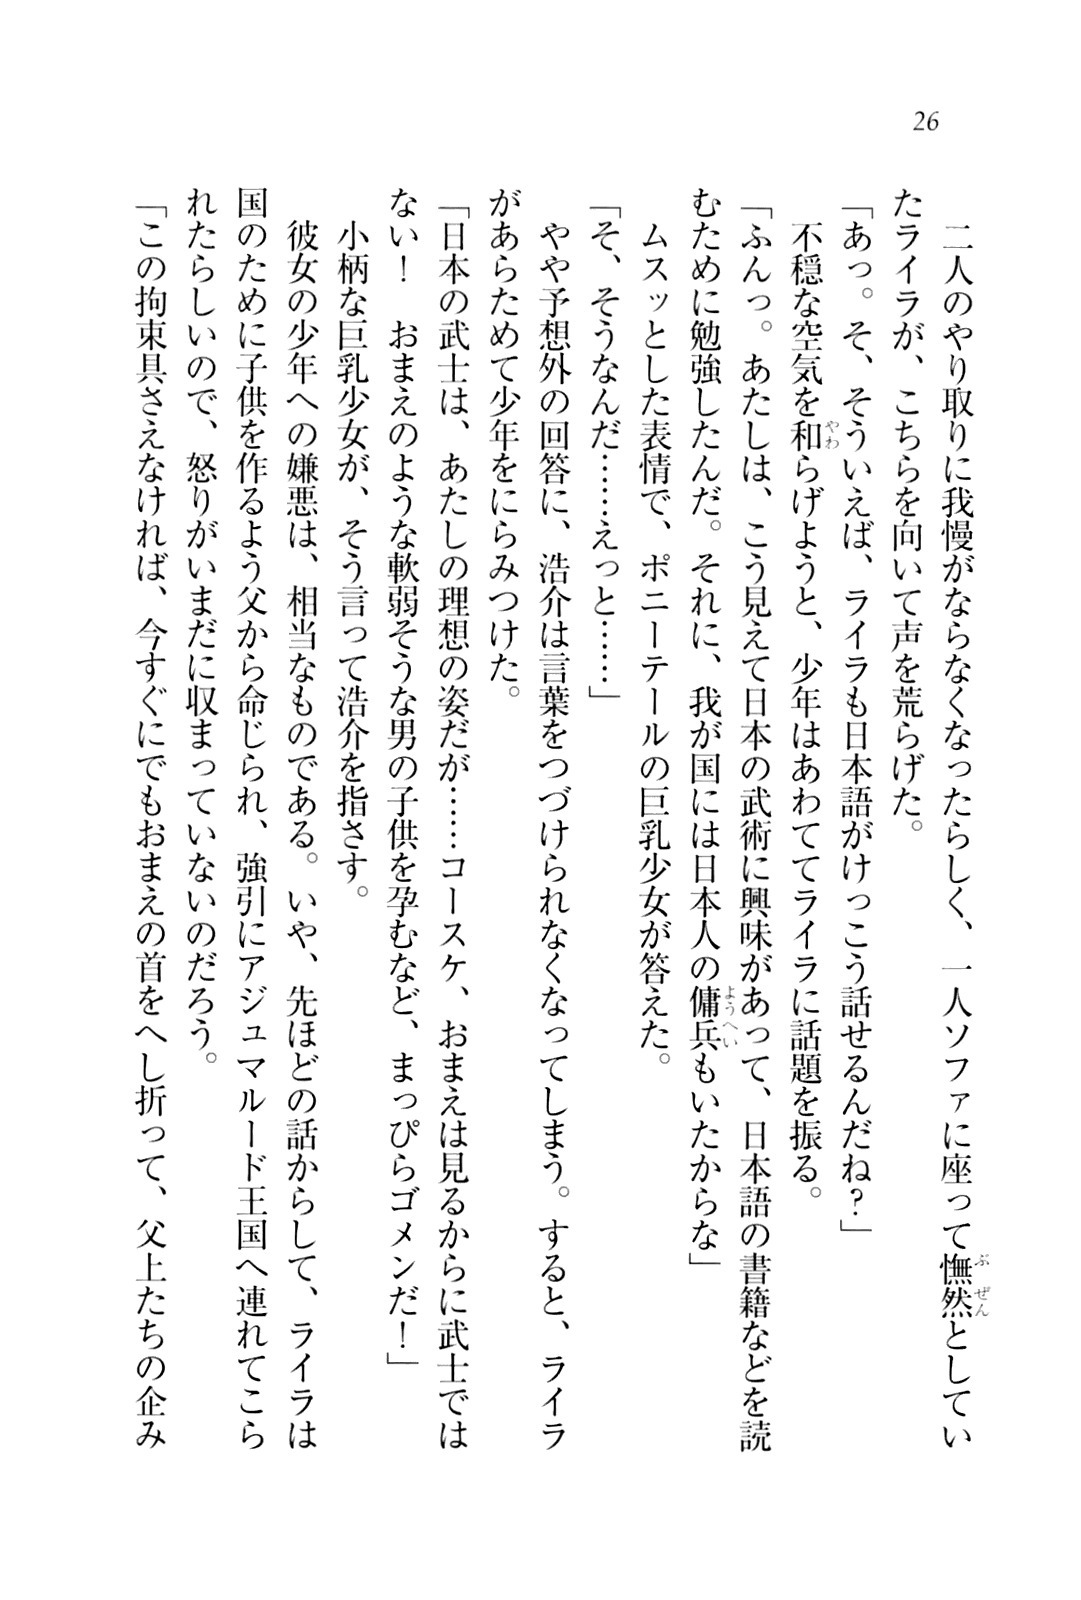 26
二人のやり取りに我慢がならなくなったらしく、一人ソファに座って憮然としてい
たライラが、こちらを向いて声を荒らげた。
「あっ。そ、そういえば、ライラも日本語がけっこう話せるんだね？」
不穏な空気を和らげようと、少年はあわててライラに話題を振る。
「ふんっ。あたしは、こう見えて日本の武術に興味があって、日本語の書籍などを読
むために勉強したんだ。それに、我が国には日本人の傭兵もいたからな」
ムスッとした表情で、ポニーテールの巨乳少女が答えた。
「そ、そうなんだ……えっと……」
やや予想外の回答に、浩介は言葉をつづけられなくなってしまう。すると、ライラ
があらためて少年をにらみつけた。
「日本の武士は、あたしの理想の姿だが……コースケ、おまえは見るからに武士では
ない！　おまえのような軟弱そうな男の子供を孕むなど、まっぴらゴメンだ！」
小柄な巨乳少女が、そう言って浩介を指さす。
彼女の少年への嫌悪は、相当なものである。いや、先ほどの話からして、ライラは
国のために子供を作るよう父から命じられ、強引にアジュマルード王国へ連れてこら
れたらしいので、怒りがいまだに収まっていないのだろう。
「この拘束具さえなければ、今すぐにでもおまえの首をへし折って、父上たちの企み